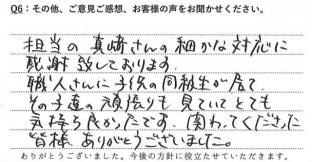 Q6：その他、ご意見ご感想、お客様の声をお聞かせください。
担当の真崎さんの細かな対応に
感謝致しております。
職人さんに子供の同級生が居て
その子達の頑張りも見ていてとても
気持ち良かったです。関わってくださった
皆様、ありがとうございました。
ありがとうございました。今後の方針に役立たせていただきます。